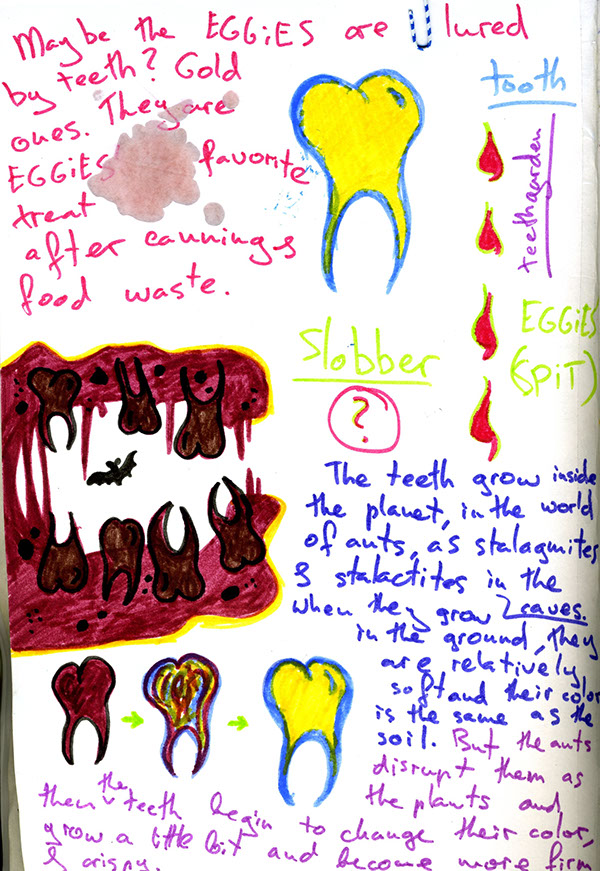 Maybe the EGGiES are lured
by teeth? Gold
ones. They are
EGGiES favorite
treat
after cunnings
food waste.
tooth
teethgarden
EGGiES
(SPiT)
Slobber
?
The teeth grow inside
the planet, in the world
of ants, as stalagmites
& stalactites in the
caves.
when they grow
in the ground, they
are relatively
soft and their color
is the same as the
soil. But the ants
disrupt them as
the plants and
then the teeth begin to change their color,
grow a little bit and become more firm
& crispy.